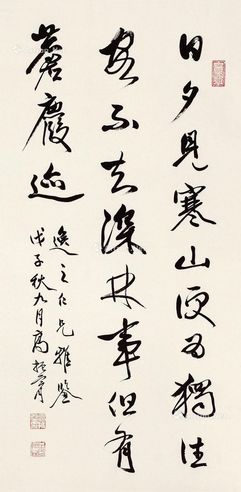 日夕見寒山便為獨往
客不知深林事但有
麏麚迹
逸之仁兄雅鑒
戊子秋九月高振霄